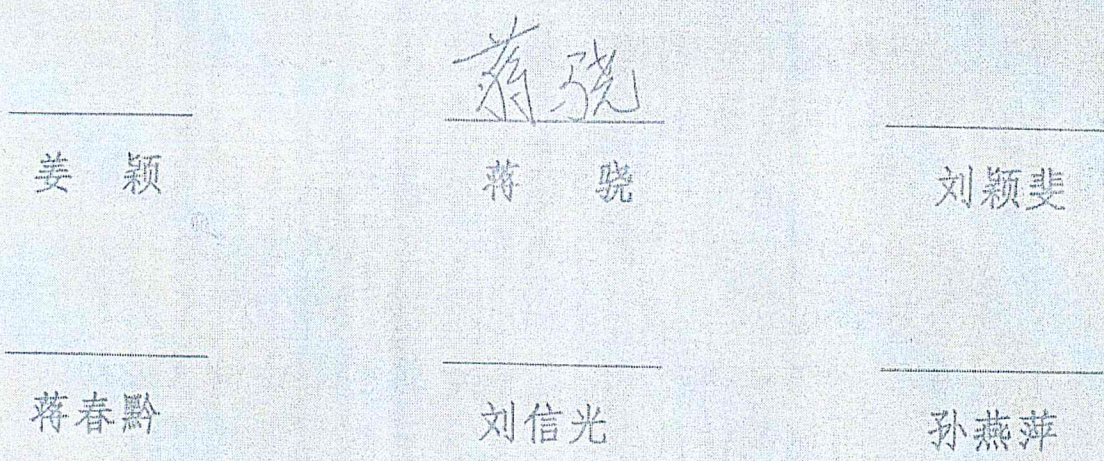 蒋骁
姜 颖 蒋 骁 刘颖斐
蒋春黔 刘信光 孙燕萍